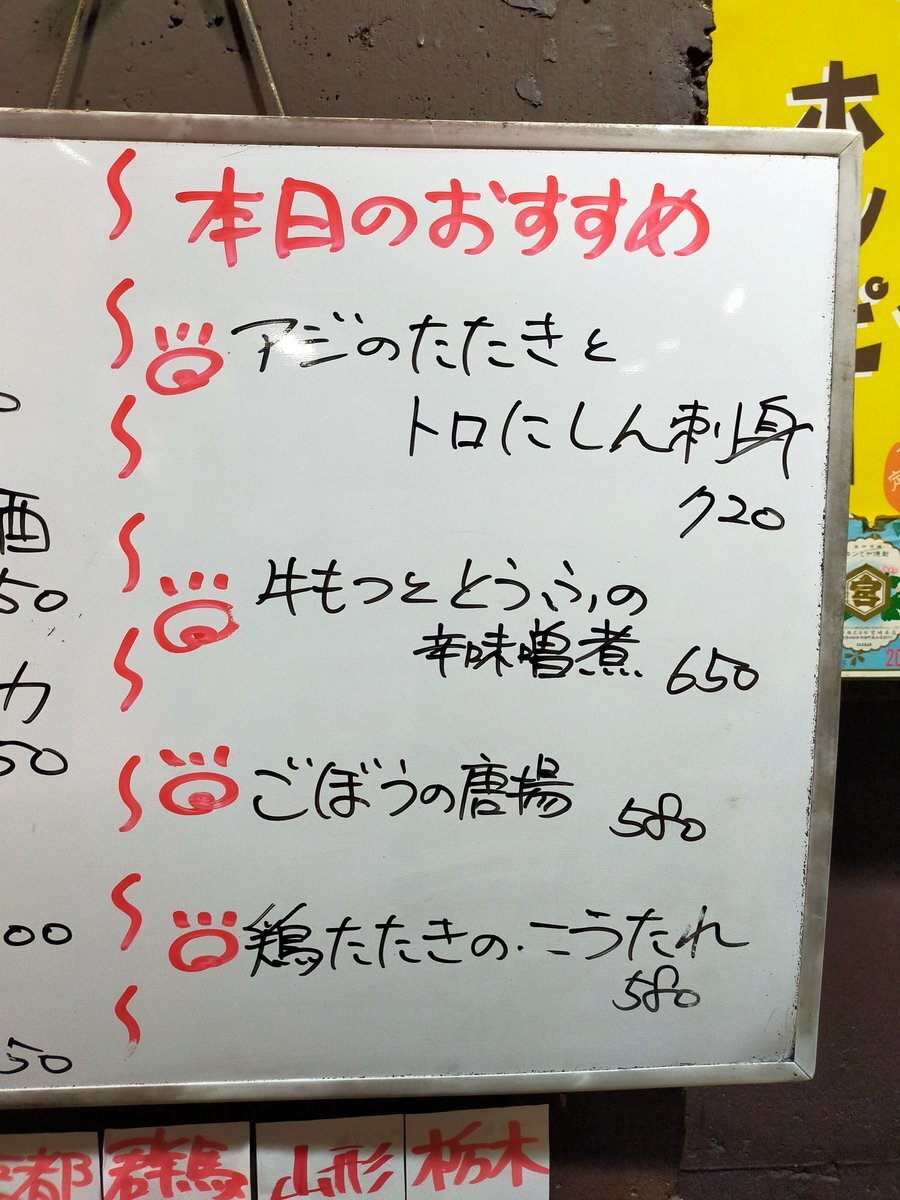 本日のおすすめ
アジのたたきと
トロにしん刺身
720
牛もつととうふの
辛味噌煮 650
ごぼうの唐揚 580
鶏たたきのこうたれ
580
酒
50
カ
50
00
50
ホッピ
宮
都
群馬
山形
栃木